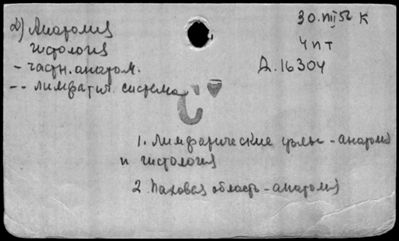 2) Анатомия
гистология
- частн. анатом.
-- лимфатич. система
30.VIII 52 К
4 пт
Д.16304
С
1. Лимфатические узлы - анатомия
и гистология
2. Паховая область - анатомия